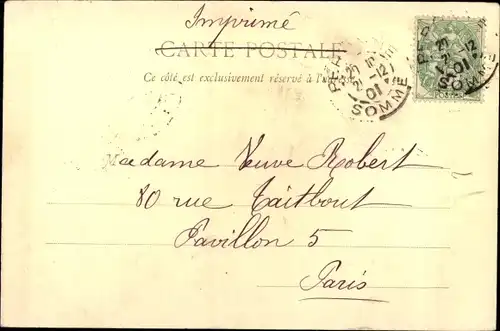 Imprimé
CARTE POSTALE
Ce côté est exclusivement réservé à
SOMME
20
2 -12
01
SOMME
Madame Veuve Robert
80 rue Taitbout
Pavillon 5
Paris